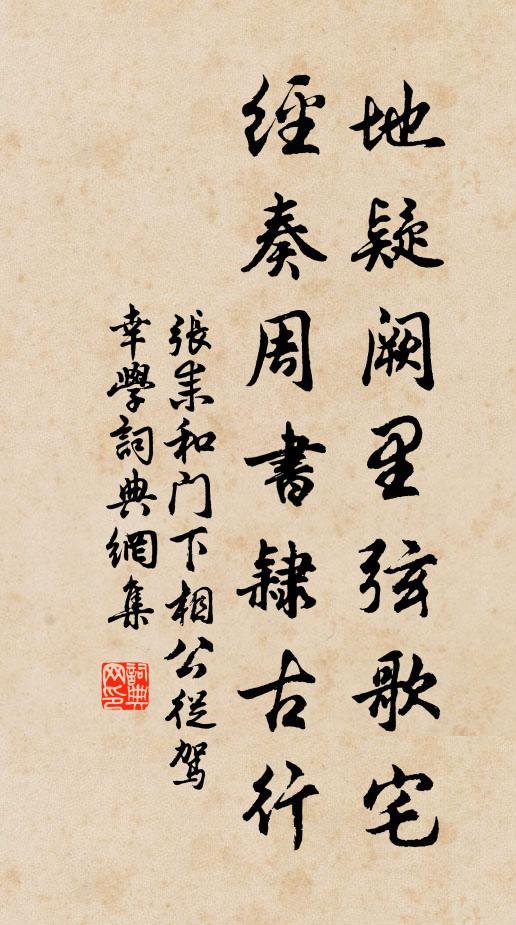 地疑阙里弦歌宅
經奏周書隸古行
張耒和门下相公從駕
幸學詞典網集
詞典
网印